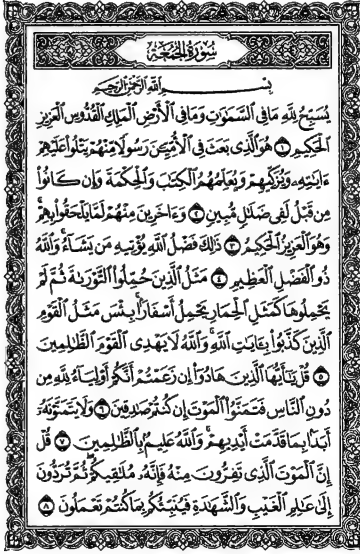 سُورَةُ الْجُمُعَةِ
بِسْمِ اللَّهِ الرَّحْمَٰنِ الرَّحِيمِ
يُسَبِّحُ لِلَّهِ مَا فِي السَّمَٰوَٰتِ وَمَا فِي الْأَرْضِ الْمَلِكِ الْقُدُّوسِ الْعَزِيزِ
الْحَكِيمِ ١ هُوَ الَّذِي بَعَثَ فِي الْأُمِّيِّـۧنَ رَسُولًا مِّنْهُمْ يَتْلُوا۟ عَلَيْهِمْ
ءَايَٰتِهِۦ وَيُزَكِّيهِمْ وَيُعَلِّمُهُمُ الْكِتَٰبَ وَالْحِكْمَةَ وَإِن كَانُوا۟
مِن قَبْلُ لَفِي ضَلَٰلٍ مُّبِينٍ ٢ وَءَاخَرِينَ مِنْهُمْ لَمَّا يَلْحَقُوا۟ بِهِمْ
وَهُوَ الْعَزِيزُ الْحَكِيمُ ٣ ذَٰلِكَ فَضْلُ اللَّهِ يُؤْتِيهِ مَن يَشَآءُ وَاللَّهُ
ذُو الْفَضْلِ الْعَظِيمِ ٤ مَثَلُ الَّذِينَ حُمِّلُوا۟ التَّوْرَىٰةَ ثُمَّ لَمْ
يَحْمِلُوهَا كَمَثَلِ الْحِمَارِ يَحْمِلُ أَسْفَارًۢا بِئْسَ مَثَلُ الْقَوْمِ
الَّذِينَ كَذَّبُوا۟ بِـَٔايَٰتِ اللَّهِ وَاللَّهُ لَا يَهْدِي الْقَوْمَ الظَّٰلِمِينَ
٥ قُلْ يَٰٓأَيُّهَا الَّذِينَ هَادُوٓا۟ إِن زَعَمْتُمْ أَنَّكُمْ أَوْلِيَآءُ لِلَّهِ مِن
دُونِ النَّاسِ فَتَمَنَّوُا۟ الْمَوْتَ إِن كُنتُمْ صَٰدِقِينَ ٦ وَلَا يَتَمَنَّوْنَهُۥٓ
أَبَدًۢا بِمَا قَدَّمَتْ أَيْدِيهِمْ وَاللَّهُ عَلِيمٌۢ بِالظَّٰلِمِينَ ٧ قُلْ
إِنَّ الْمَوْتَ الَّذِي تَفِرُّونَ مِنْهُ فَإِنَّهُۥ مُلَٰقِيكُمْ ثُمَّ تُرَدُّونَ
إِلَىٰ عَٰلِمِ الْغَيْبِ وَالشَّهَٰدَةِ فَيُنَبِّئُكُم بِمَا كُنتُمْ تَعْمَلُونَ ٨